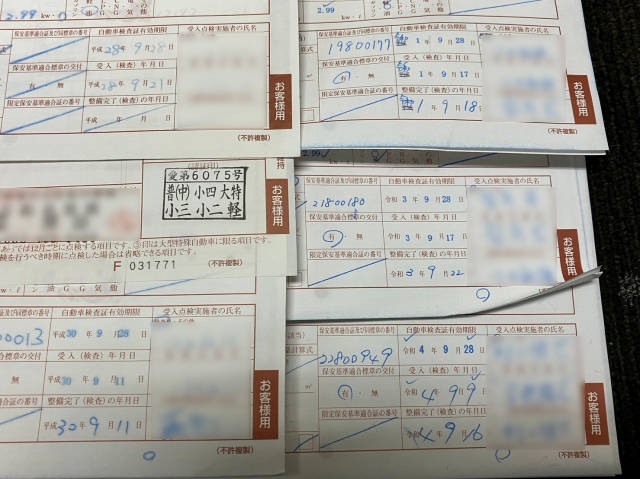 2.99 kw・
保安基準適合証及び同標章の番号
自動車検査証有効期限
受入点検実施者の氏名
平成 28年 9月 28日
保安基準適合標章の交付
受入(検査)年月日
有・無
平成 28年 9月 21日
限定保安基準適合証の番号
整備完了(検査)の年月日
平成 年 月 日
お客様用
(不許複製)
2.99
保安基準適合証及び同標章の番号
自動車検査証有効期限
受入点検実施者の氏名
19800177
1年 9月 28日
保安基準適合標章の交付
受入(検査)年月日
有・無
1年 9月 17日
限定保安基準適合証の番号
整備完了(検査)の年月日
1年 9月 18日
お客様用
(不許複製)
愛第6075号
普(中)小四大特
小三小二軽
お客様用
あっては12月ごとに点検する項目です。
印は大型特殊自動車に限る項目です。
検を行うべき時期に点検した場合は省略できる項目です。
F 031771
(不許複製)
保安基準適合証及び同標章の番号
自動車検査証有効期限
受入点検実施者の氏名
21800180
令和 3年 9月 28日
保安基準適合標章の交付
受入(検査)年月日
有・無
令和 3年 9月 17日
限定保安基準適合証の番号
整備完了(検査)の年月日
令和 3年 9月 22日
お客様用
(不許複製)
同標章の番号
自動車検査証有効期限
受入点検実施者の氏名
0013
平成 30年 9月 28日
合標章の交付
受入(検査)年月日
・無
平成 30年 9月 11日
合証の番号
整備完了(検査)の年月日
平成 30年 9月 11日
お客様用
(不許複製)
保安基準適合証及び同標章の番号
自動車検査証有効期限
受入点検実施者の氏名
22800949
令和 4年 9月 28日
保安基準適合標章の交付
受入(検査)年月日
有・無
令和 4年 9月 9日
限定保安基準適合証の番号
整備完了(検査)の年月日
令和 4年 9月 16日
お客様用
(不許複製)